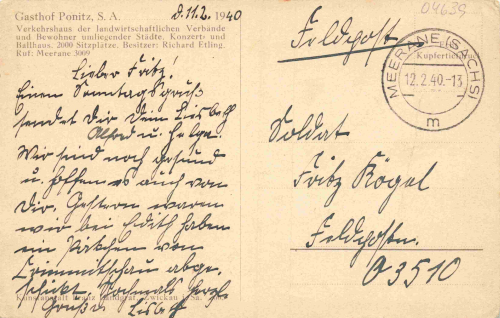 Gasthof Ponitz, S. A.
Verkehrshaus der landwirtschaftlichen Verbände
und Bewohner umliegender Städte. Konzert- und
Ballhaus. 2000 Sitzplätze. Besitzer: Richard Etling.
Ruf: Meerane 3009
d. 11.2. 1940
Lieber Fritz!
Einen Sonntagsgruß
sendet Dir Dein Liesbeth
Alfred u. Helga.
Wir sind noch gesund
u. hoffen es auch von
Dir. Gestern waren
wir bei Edith haben
ein Päckchen von
Crimmitschau abge-
schickt. Nochmals herzl.
Grüße Lisbeth
Kunstanstalt Landgraf, Zwickau i. Sa.
04639
Feldpost
Kupfertiefdr
MEERANE (SACHS)
12.2.40.-13
m
Soldat
Fritz Kögel
Feldpostn.
03510